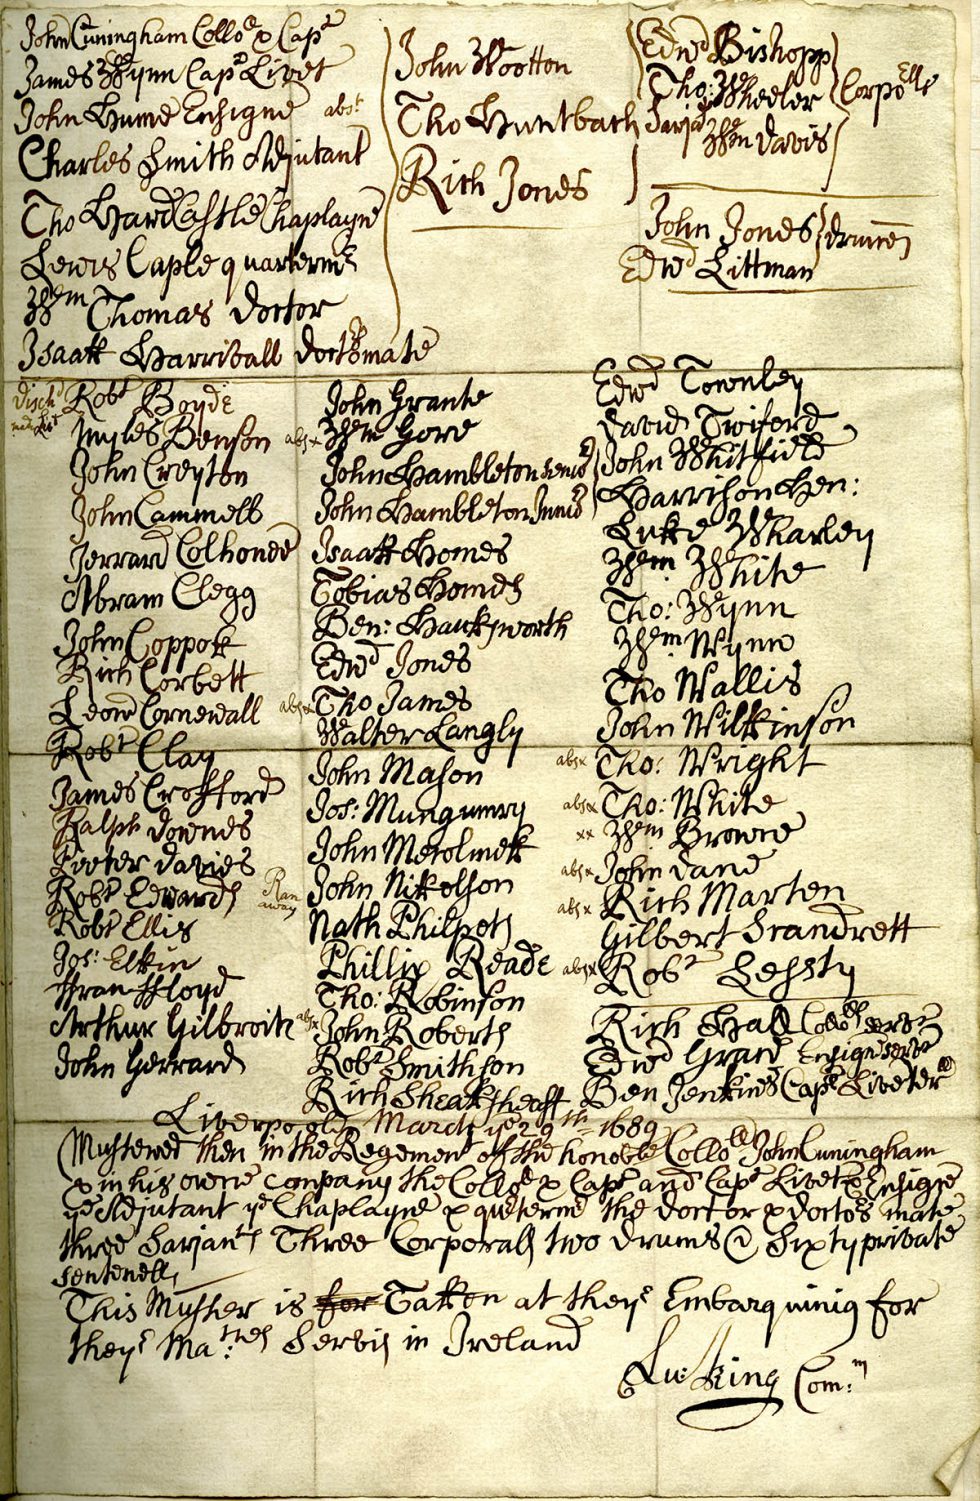 John Cuningham Collo & Capt
James Wynn Capt Livet
John Hume Ensigne abst
Charles Smith Adjutant
Tho HardCastle Chaplayne
Lewis Caple quarterme
Wm Thomas doctor
Isaack Harrivall doct mate
John Wootton
Tho Huntbach
Rich Jones
Sarja
Edwd Bishopp
Tho: Wheeler
Wm Davis
Corpolls
John Jones
Edwd Littman
drume
Disch
Robt Boyde
Myles Benson
John Creyton
John Cammell
Jerrard Colhoune
Abram Clegg
John Coppock
Rich Corbett
Leond Cornewall
Robt Clay
James Crofford
Ralph Downes
Peeter Davies
Robt Edwards
Robt Ellis
Jos: Elkin
ffran ffloyd
Arthur Gilbroith
John Gerrard
John Grante
abs x Wm Gore
John Hambleton senior
John Hambleton Junior
Isaack Homes
Tobias Homes
Ben: Hauksworth
Edwd Jones
abs x Tho James
Walter Langly
John Mason
Jos: Mungumry
John Mecolmek
Ran away John Nikolson
Nath Philpots
Phillip Reade
Tho: Robinson
abs x John Roberts
Robt Smithson
Rich Sheakesheaff
Edwd Townley
David Twiford
John Whitfield
Harrison Hen:
Luke Wharley
Wm White
Tho: Wynn
Wm Wynne
Tho Wallis
John Wilkinson
abs x Tho: Wright
abs x Tho: White
xx Wm Browne
abs x John Dane
abs x Rich Marten
Gilbert Scandrett
abs x Robt Lessly
Rich Hall Collolls servt
Edwd Grard Ensignes servt
Ben Jenkins Capt Liveter
Liverpoole March ye 29th = 1689
Mustered then in the Regement off the honoble Colloll John Cuningham
& in his owne company the Collo & Capt and Capt Livet & Ensigne
ye Adjutant ye Chaplayne & quterme the doctor & doctors mate
three Sarjants Three Corporalls two drumes @ Sixty private
Sentenells
This Muster is for Tatken at theyr Embarquinig for
theyr Ma:ties Servis in Ireland
Lu: King Com:m